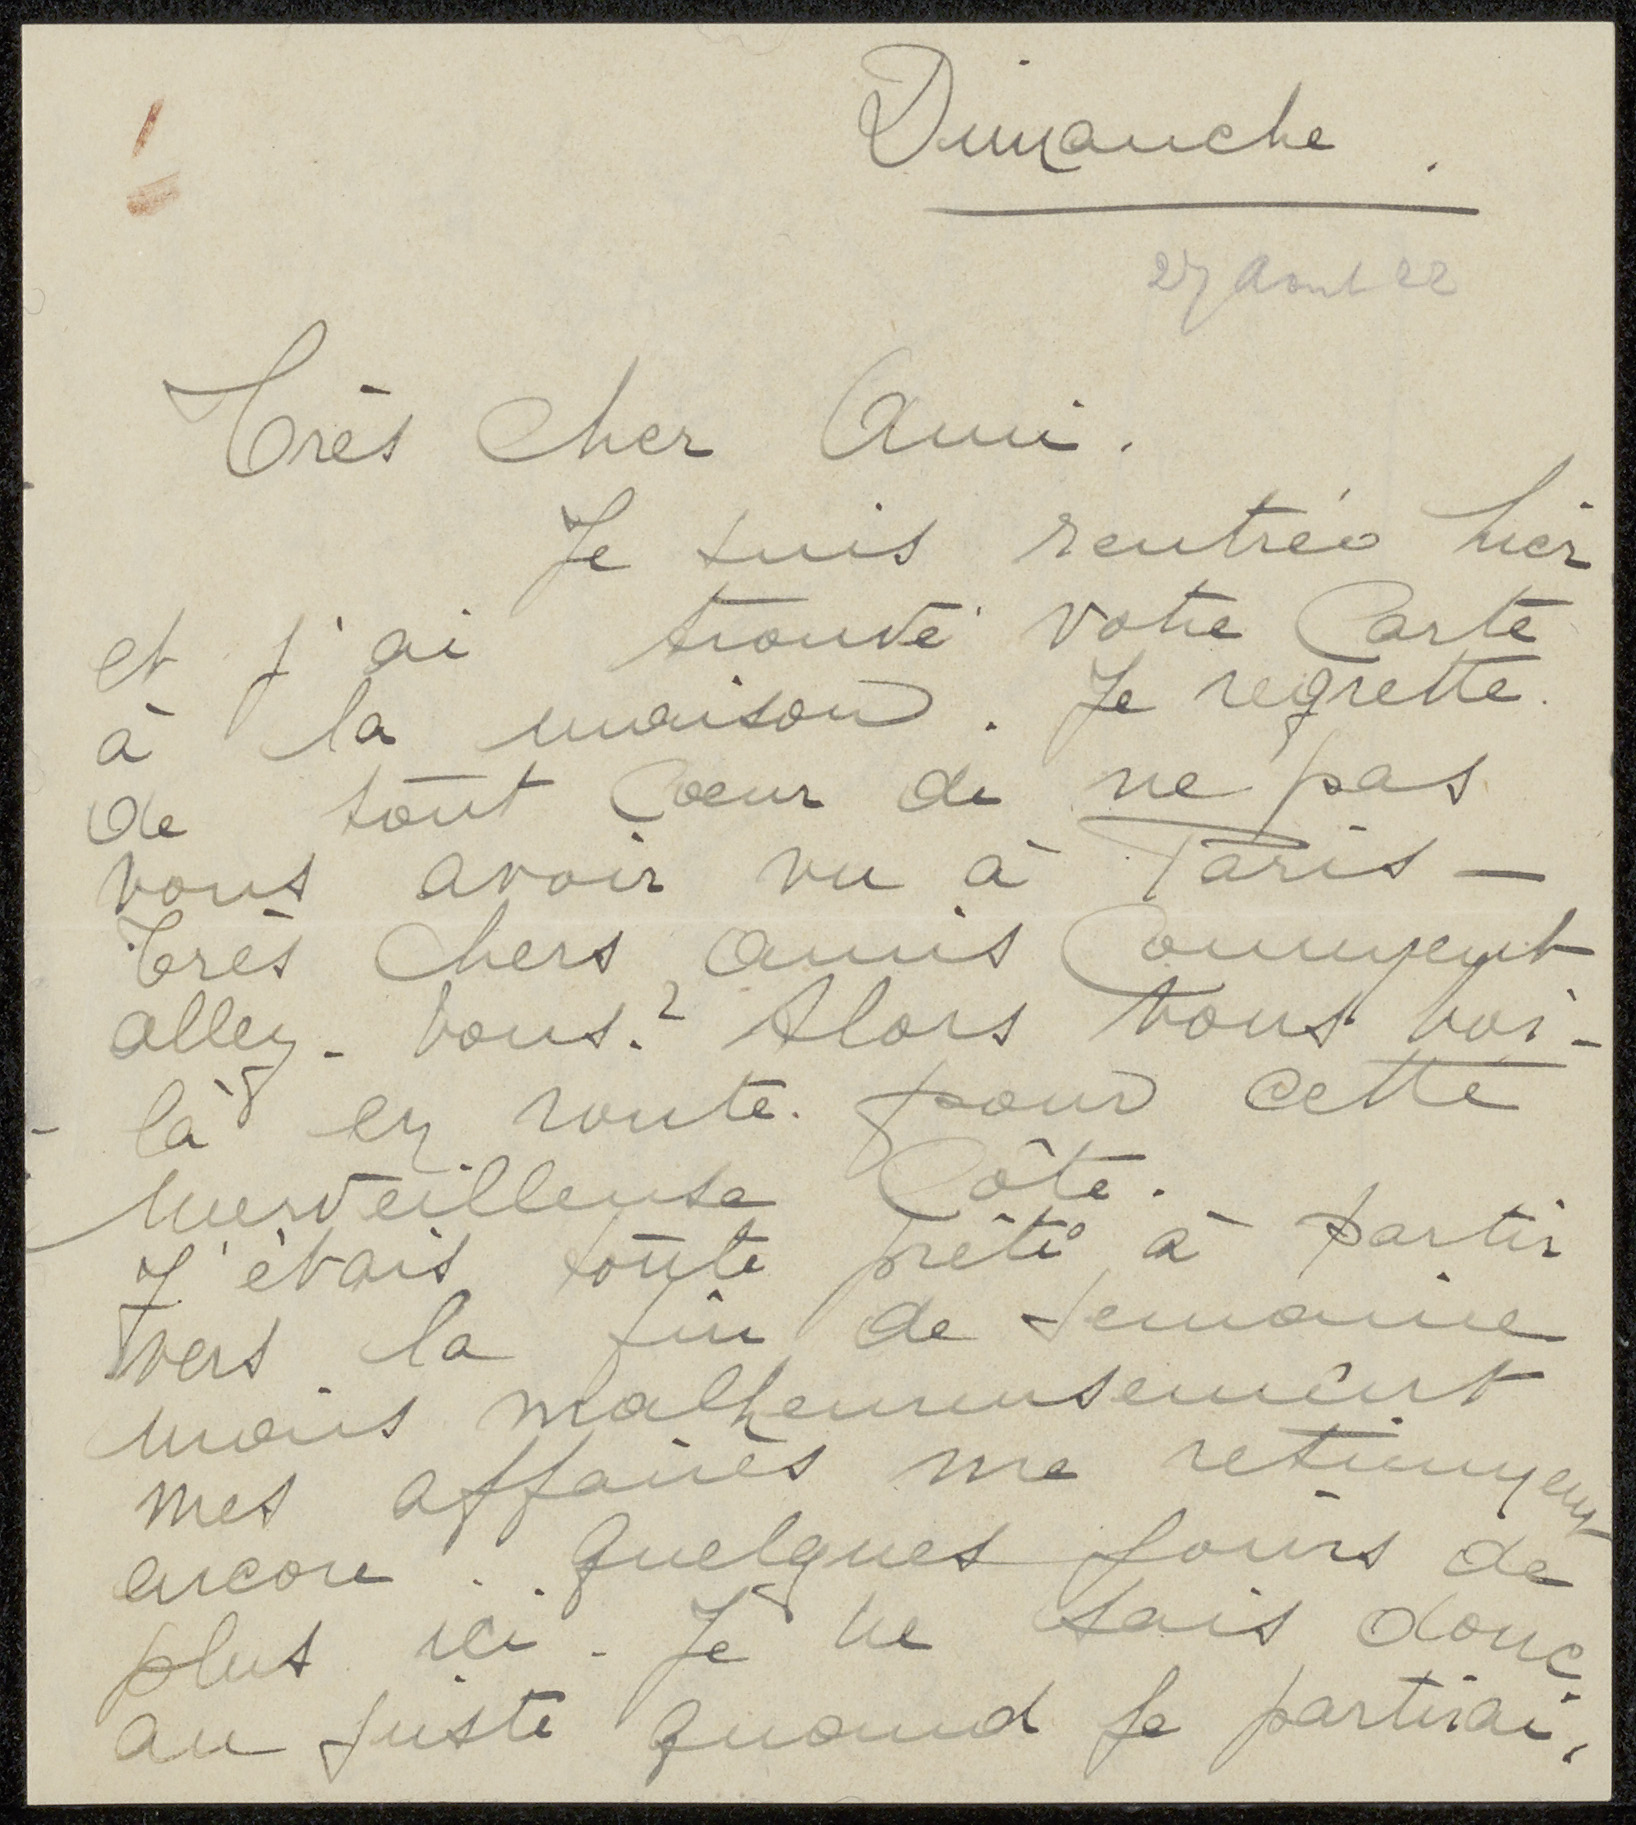 Dimanche.
27 Aout 22
Très cher Ami.
Je suis rentrée hier
et j'ai trouvé votre Carte
à la maison. Je regrette.
de tout Coeur de ne pas
vous avoir vu à Paris —
Très Chers amis Comment
allez-vous? Alors vous voi-
là en route. pour cette
merveilleuse Côte.
J'étais toute prête à partir
vers la fin de semaine
mais malheureusement
mes affaires me retiennent
encore. quelques jours de
plus ici. Je ne sais donc
au juste quand je partirai,